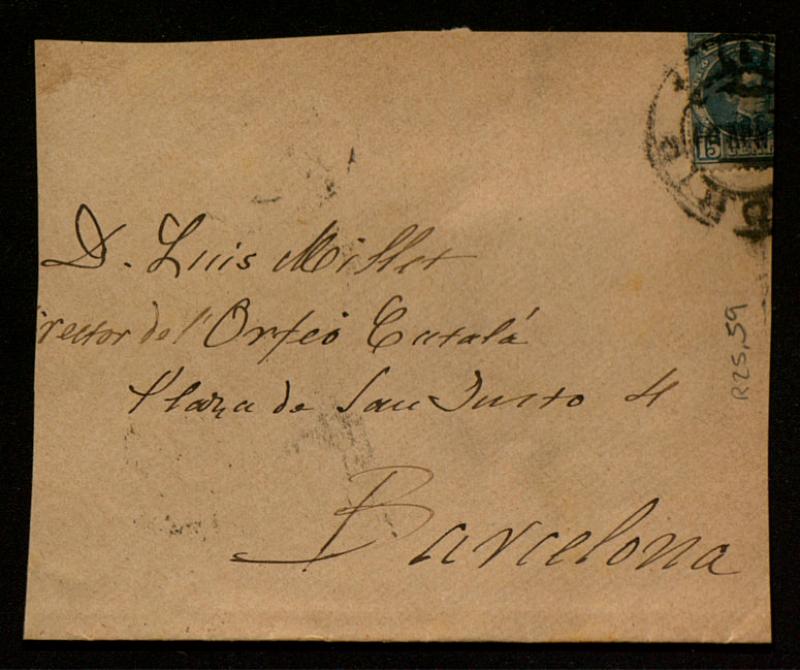 D. Luis Millet
irector de l'Orfeó Catalá
Plaza de San Justo 4
Barcelona
15
R25,59